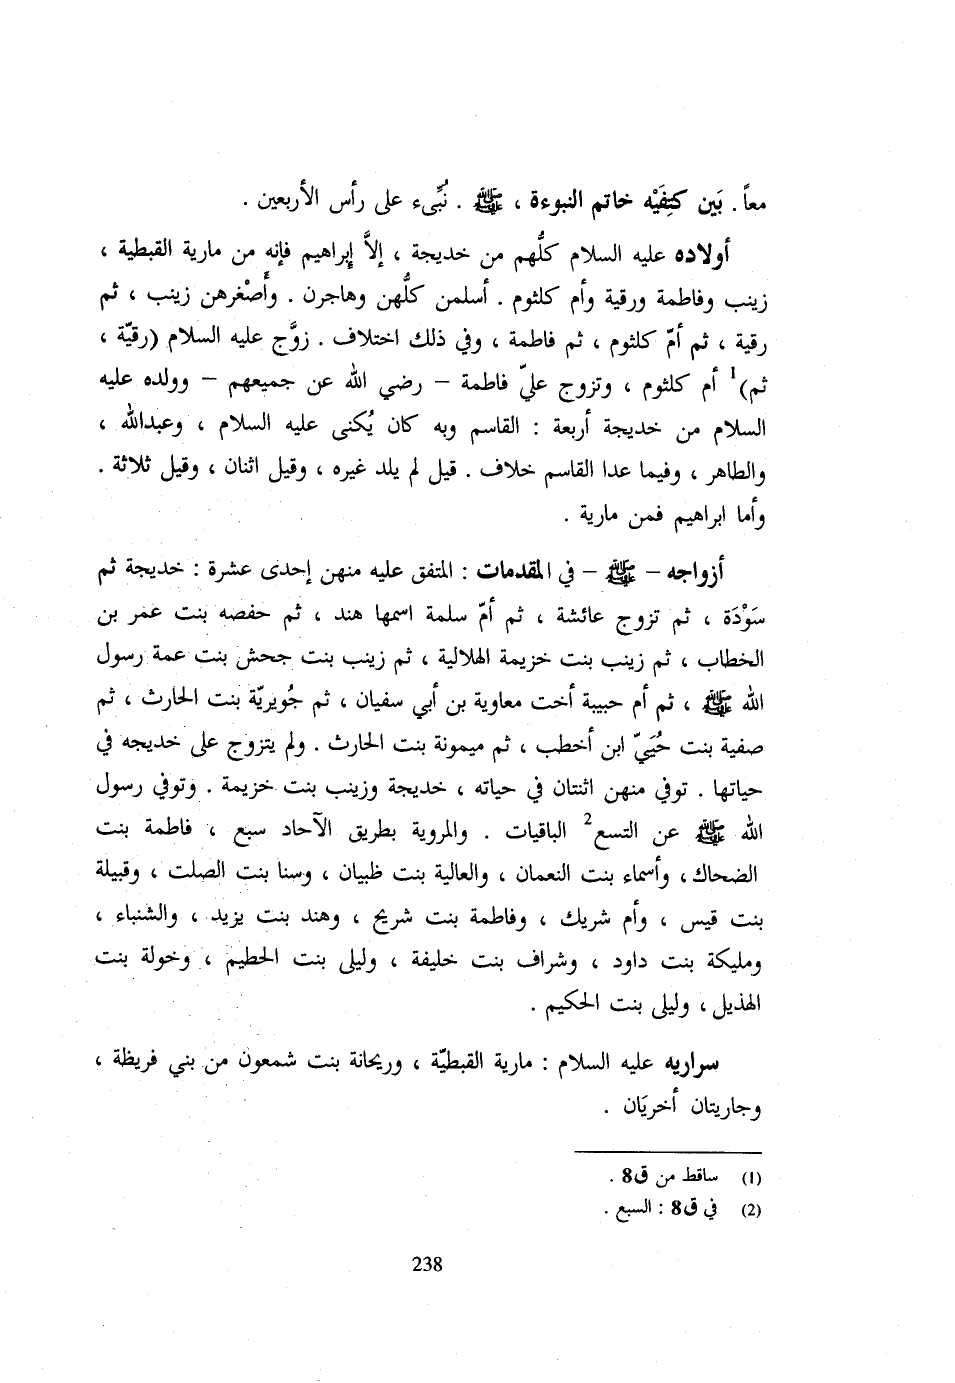 معاً . بَين كتِفَيْه خاتم النبوءة ، ﷺ . نُبِّىء على رأس الأربعين .
أولاده عليه السلام كلُّهم من خديجة ، إلاَّ إبراهيم فإنه من مارية القبطية ،
زينب وفاطمة ورقية وأم كلثوم . أسلمن كلُّهن وهاجرن . وأَصْغرهن زينب ، ثم
رقية ، ثم أمّ كلثوم ، ثم فاطمة ، وفي ذلك اختلاف . زوَّج عليه السلام (رقيّة ،
ثم)1 أم كلثوم ، وتزوج عليّ فاطمة – رضي الله عن جميعهم – وولده عليه
السلام من خديجة أربعة : القاسم وبه كان يُكنى عليه السلام ، وعبدالله ،
والطاهر ، وفيما عدا القاسم خلاف . قيل لم يلد غيره ، وقيل اثنان ، وقيل ثلاثة .
وأما ابراهيم فمن مارية .
أزواجه – ﷺ – في المقدمات : المتفق عليه منهن إحدى عشرة : خديجة ثم
سَوْدَة ، ثم تزوج عائشة ، ثم أمّ سلمة اسمها هند ، ثم حفصه بنت عمر بن
الخطاب ، ثم زينب بنت خزيمة الهلالية ، ثم زينب بنت جحش بنت عمة رسول
الله ﷺ ، ثم أم حبيبة أخت معاوية بن أبي سفيان ، ثم جُويريّة بنت الحارث ، ثم
صفية بنت حُيَيّ ابن أخطب ، ثم ميمونة بنت الحارث . ولم يتزوج على خديجه في
حياتها . توفي منهن اثنتان في حياته ، خديجة وزينب بنت خزيمة . وتوفي رسول
الله ﷺ عن التسع2 الباقيات . والمروية بطريق الآحاد سبع ، فاطمة بنت
الضحاك ، وأسماء بنت النعمان ، والعالية بنت ظبيان ، وسنا بنت الصلت ، وقبيلة
بنت قيس ، وأم شريك ، وفاطمة بنت شريح ، وهند بنت يزيد ، والشنباء ،
ومليكة بنت داود ، وشراف بنت خليفة ، وليلى بنت الحطيم ، وخولة بنت
الهذيل ، وليلى بنت الحكيم .
سراريه عليه السلام : مارية القبطيّة ، وريحانة بنت شمعون من بني قريظة ،
وجاريتان أخريَان .
(1) ساقط من ق8 .
(2) في ق8 : السبع .
238